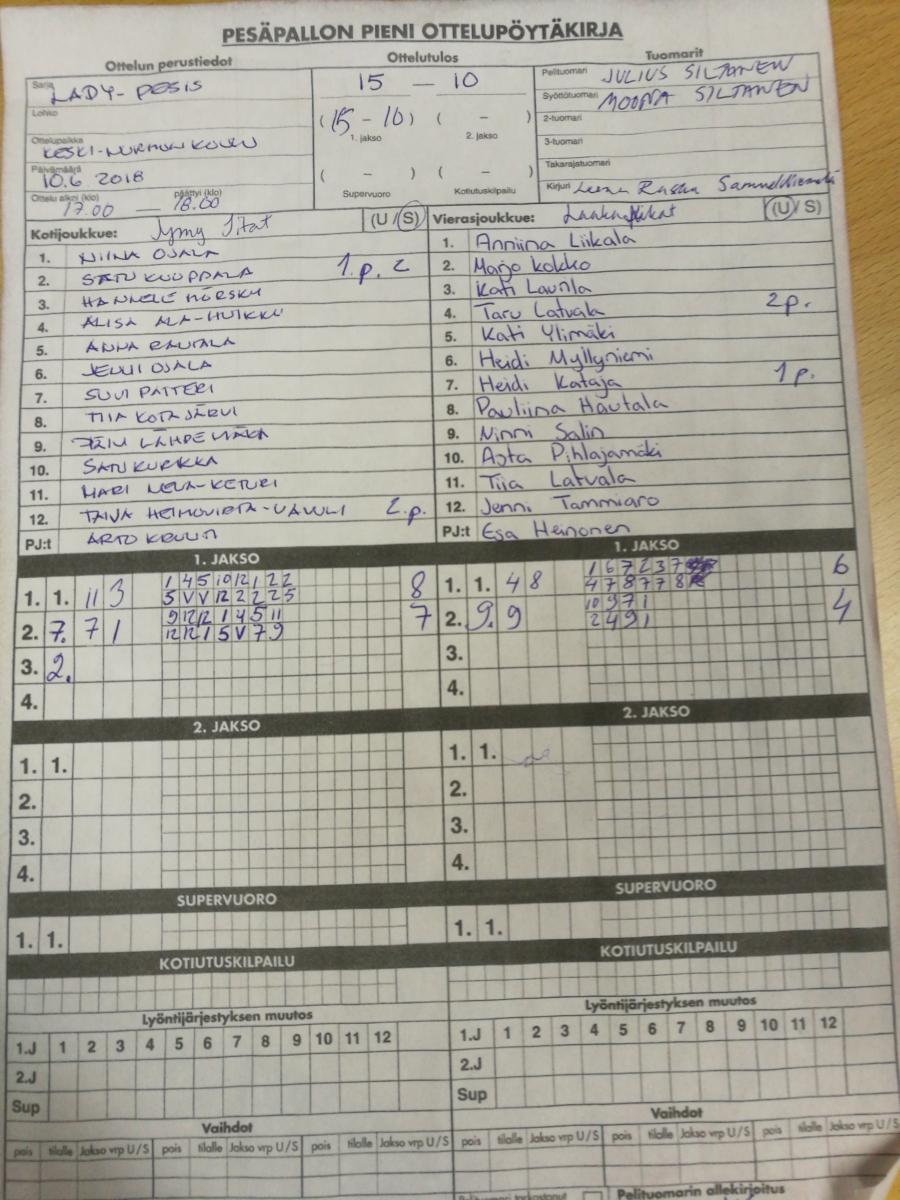 PESÄPALLON PIENI OTTELUPÖYTÄKIRJA
Ottelun perustiedot Ottelutulos Tuomarit
Sarja LADY-PESIS 15 — 10 Pelituomari JULIUS SILTANEN
Lohko Syöttötuomari MOONA SILTANEN
(15 - 10) ( - ) 2-tuomari
1. jakso 2. jakso
Ottelupaikka KESKI-NURMON KOULU 3-tuomari
Päivämäärä 10.6 2018 ( - ) ( - ) Takarajatuomari
Ottelu alkoi (klo) 17.00 — päättyi (klo) 18.00 Supervuoro Kotiutuskilpailu Kirjuri Leena
Kotijoukkue: Jymy (U/S) Vierasjoukkue: (U/S)
1. NIINA OJALA 1. Anniina Liikala
2. SATU KUOPPALA 1.p. 2 2. Marjo Kokko
3. HANNELE 3. Kati Laurila
4. ALISA ALA-HUIKKU 4. Taru Latvala 2p.
5. ANNA RAUTALA 5. Kati Ylimäki
6. JENNI OJALA 6. Heidi Myllyniemi
7. SUVI PATTERI 7. Heidi Kataja 1p.
8. TIIA KOTAJÄRVI 8. Pauliina Hautala
9. PÄIVI LÄHDEMÄKI 9. Ninni Salin
10. SATU KURKKA 10. Asta Pihlajamäki
11. MARI NEVA-KETURI 11. Tiia Latvala
12. TAIJA 2.p. 12. Jenni Tammiaro
PJ:t ARTO PJ:t Esa Heinonen
1. JAKSO 1. JAKSO
1. 1. 11 3 1 4 5 10 12 1 2 2 8 1. 1. 4 8 1 6 7 2 3 7 6
5 V V 12 2 2 2 5 4 7 8 7 7 8
2. 7. 7 1 9 12 12 1 4 5 11 7 2. 9. 9 10 9 7 1 4
12 12 1 5 V 7 9 2 4 9 1
3. 2. 3.
4. 4.
2. JAKSO 2. JAKSO
1. 1. 1. 1.
2. 2.
3. 3.
4. 4.
SUPERVUORO SUPERVUORO
1. 1. 1. 1.
KOTIUTUSKILPAILU KOTIUTUSKILPAILU
Lyöntijärjestyksen muutos Lyöntijärjestyksen muutos
1.J 1 2 3 4 5 6 7 8 9 10 11 12 1.J 1 2 3 4 5 6 7 8 9 10 11 12
2.J 2.J
Sup Sup
Vaihdot Vaihdot
pois tilalle Jakso vrp U/S pois tilalle Jakso vrp U/S pois tilalle Jakso vrp U/S pois tilalle Jakso vrp U/S pois tilalle Jakso vrp U/S
Pelituomari tarkastanut Pelituomarin allekirjoitus